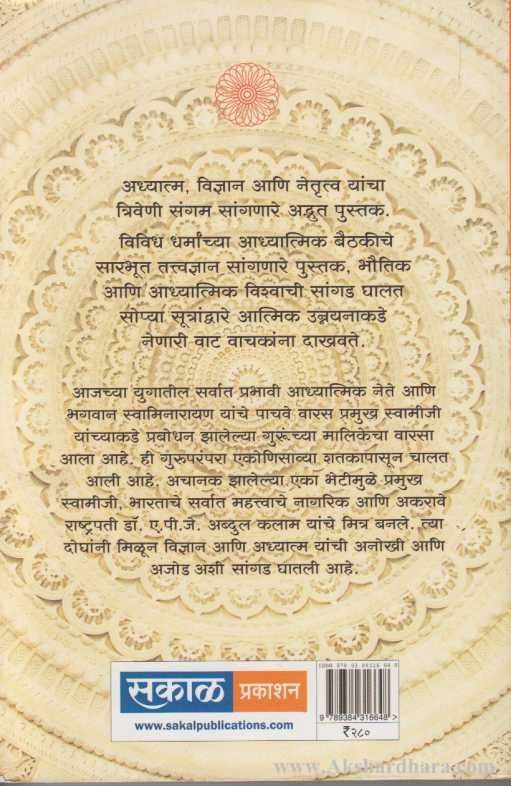 अध्यात्म, विज्ञान आणि नेतृत्व यांचा
त्रिवेणी संगम सांगणारे अद्भुत पुस्तक.
विविध धर्मांच्या आध्यात्मिक बैठकीचे
सारभूत तत्त्वज्ञान सांगणारे पुस्तक, भौतिक
आणि आध्यात्मिक विश्वाची सांगड घालत
सोप्या सूत्रांद्वारे आत्मिक उन्नयनाकडे
नेणारी वाट वाचकांना दाखवते.
आजच्या युगातील सर्वात प्रभावी आध्यात्मिक नेते आणि
भगवान स्वामिनारायण यांचे पाचवे वारस प्रमुख स्वामीजी
यांच्याकडे प्रबोधन झालेल्या गुरूंच्या मालिकेचा वारसा
आला आहे. ही गुरुपरंपरा एकोणिसाव्या शतकापासून चालत
आली आहे. अचानक झालेल्या एका भेटीमुळे प्रमुख
स्वामीजी, भारताचे सर्वात महत्त्वाचे नागरिक आणि अकरावे
राष्ट्रपती डॉ. ए.पी.जे. अब्दुल कलाम यांचे मित्र बनले. त्या
दोघांनी मिळून विज्ञान आणि अध्यात्म यांची अनोखी आणि
अजोड अशी सांगड घातली आहे.
सकाळ प्रकाशन
www.sakalpublications.com
9 789384 316648 >
₹२८०
www.Akshardhara.com